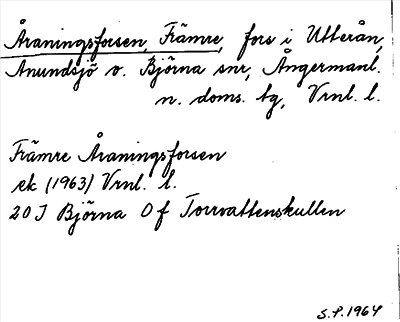 Åraningsforsen, Främre, fors i Utterån,
Anundsjö o. Björna snr, Ångermanl.
n. doms. tg, Vrnl. l.
Främre Åraningsforsen
ek (1963) Vrnl. l.
20 J Björna O f Torrvattenskullen
S.P. 1964